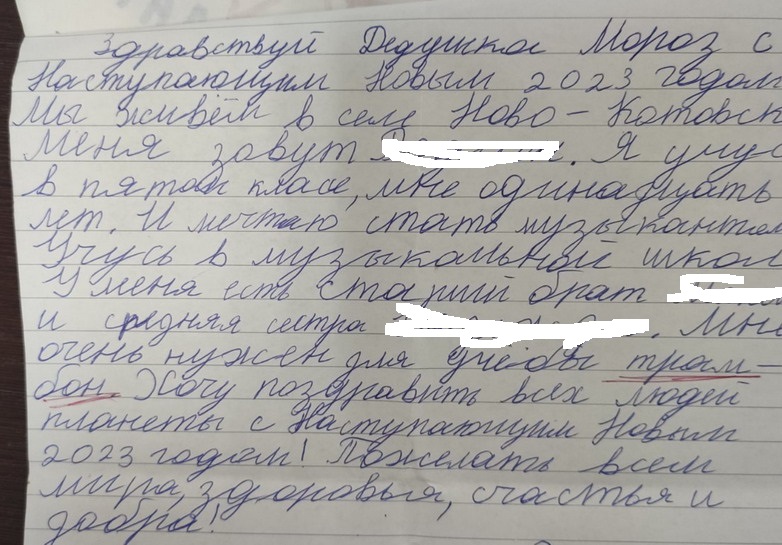 Здравствуй Дедушка Мороз с
Наступающим Новым 2023 годом
Мы живём в селе Ново-Котовск
Меня зовут . Я учус
в пятом класе, мне одинадцать
лет. И мечтаю стать музыкантом
Учусь в музыкальной школ
У меня есть старший брат
и средняя сестра . Мне
очень нужен для учёбы тром-
бон. Хочу поздравить всех людей
планеты с Наступающим Новым
2023 годом! Пожелать всем
мира, здоровья, счастья и
добра!